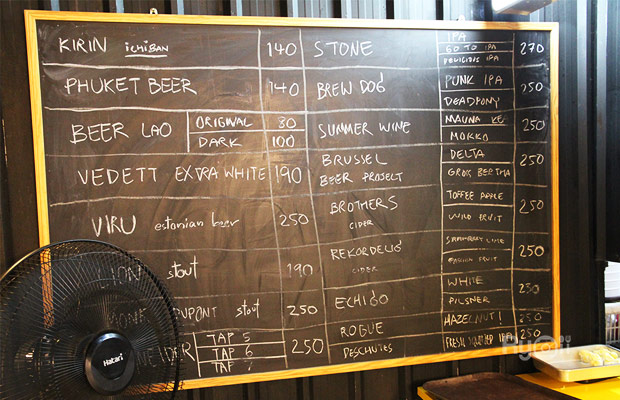 KIRIN ichiBAN 140
PHUKET BEER 140
BEER LAO ORIGINAL 30
DARK 100
VEDETT EXTRA WHITE 190
VIRU estonian beer 250
LION stout 190
DUPONT stout 250
TAP 5
TAP 6 250
TAP 7
STONE IPA 270
GO TO IPA
DELICIOUS IPA
BREW DOG PUNK IPA 250
DEADPONY
SUMMER WINE MAUNA KE 250
MOKKO
BRUSSEL DELTA 250
BEER PROJECT GROS BERTHA
BROTHERS TOFFEE APPLE 250
CIDER WILD FRUIT
REKORDELIG STRAWBERRY LIME 250
CIDER PASSION FRUIT
ECHIGO WHITE 250
PILSNER
ROGUE HAZELNUT 250
DESCHUTES FRESH SQUEEZED IPA 250
Hatari